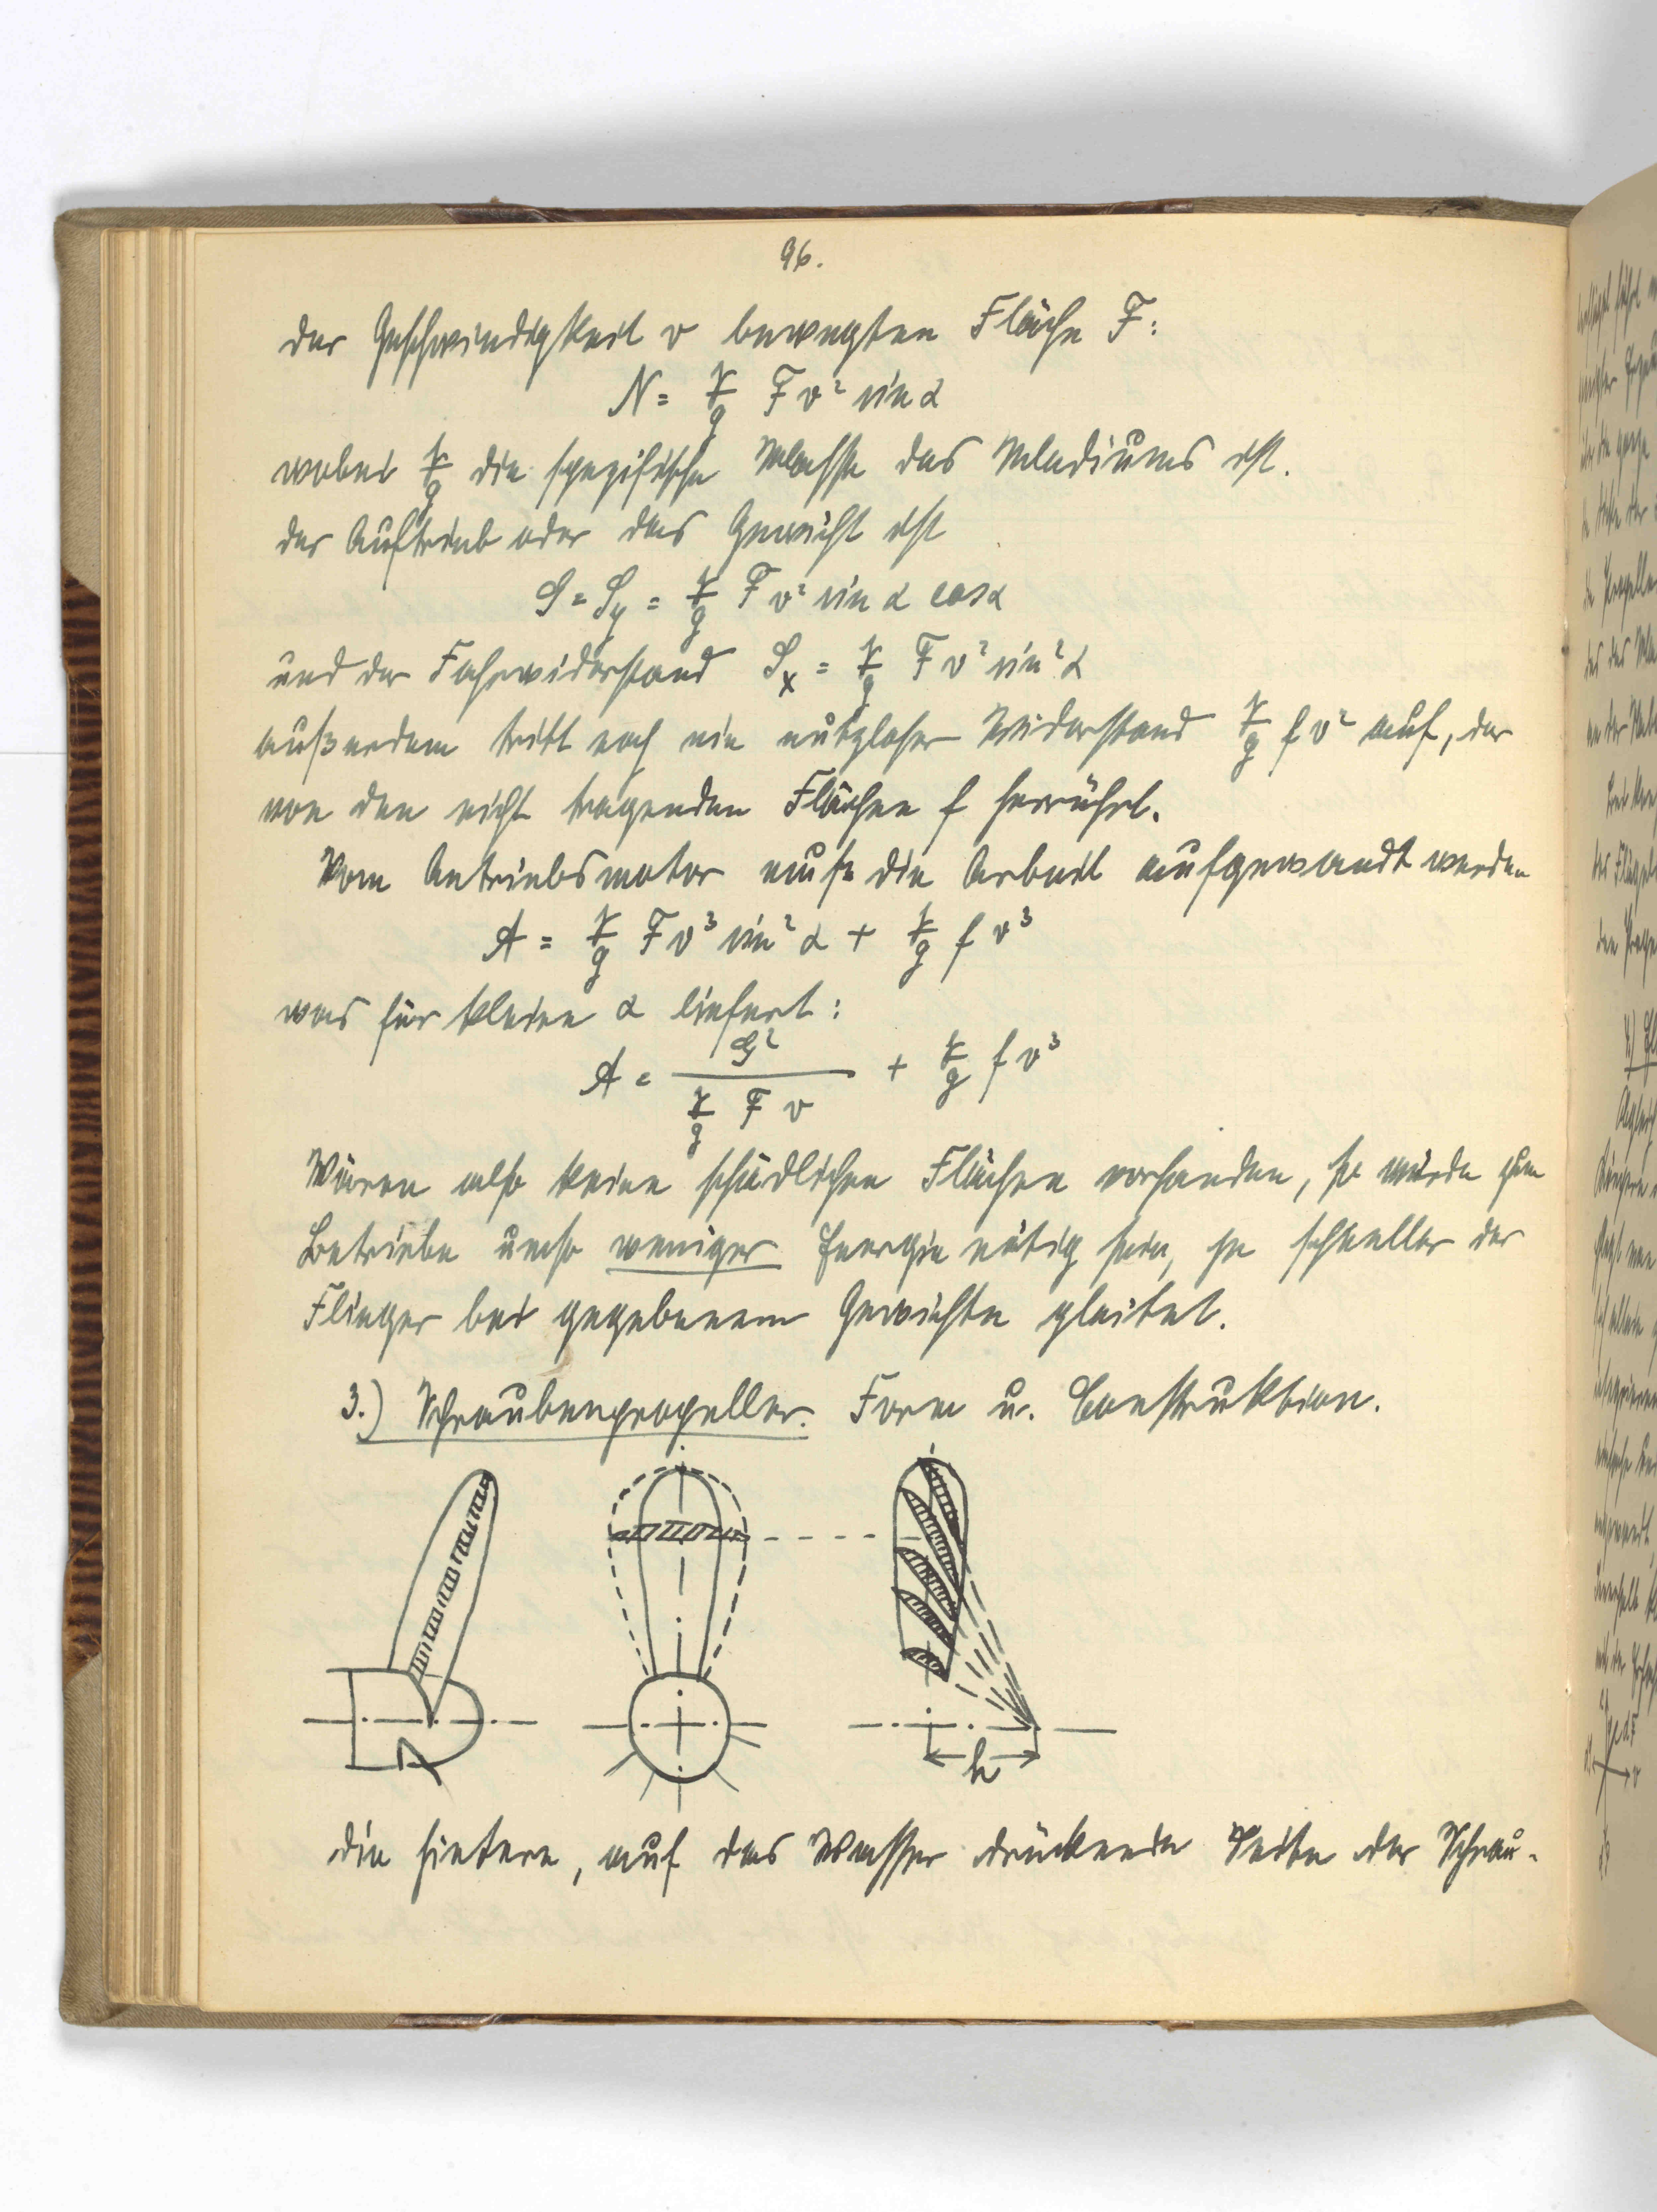 96.
der Geschwindigkeit v bewegten Fläche F:
N = γ/g F v² sin α
wobei γ/g die spezifische Masse des Mediums ist.
der Auftrieb oder das Gewicht ist
G = Sy = γ/g F v² sin α cos α
und der Fahrwiderstand Sx = γ/g F v² sin² α
außerdem tritt noch ein nutzloser Widerstand γ/g f v² auf, der
von den nicht tragenden Flächen f herrührt.
Vom Antriebsmotor muß die Arbeit aufgewandt werden
A = γ/g F v³ sin² α + γ/g f v³
was für kleine α liefert:
A = G² / (γ/g F v) + γ/g f v³
Wären also keine schädlichen Flächen vorhanden, so würde zum
Betriebe umso weniger Energie nötig sein, je schneller der
Flieger bei gegebenem Gewichte gleitet.
3.) Schraubenpropeller. Form u. Construktion.
h
die hintere, auf das Wasser drückende Seite der Schrau-